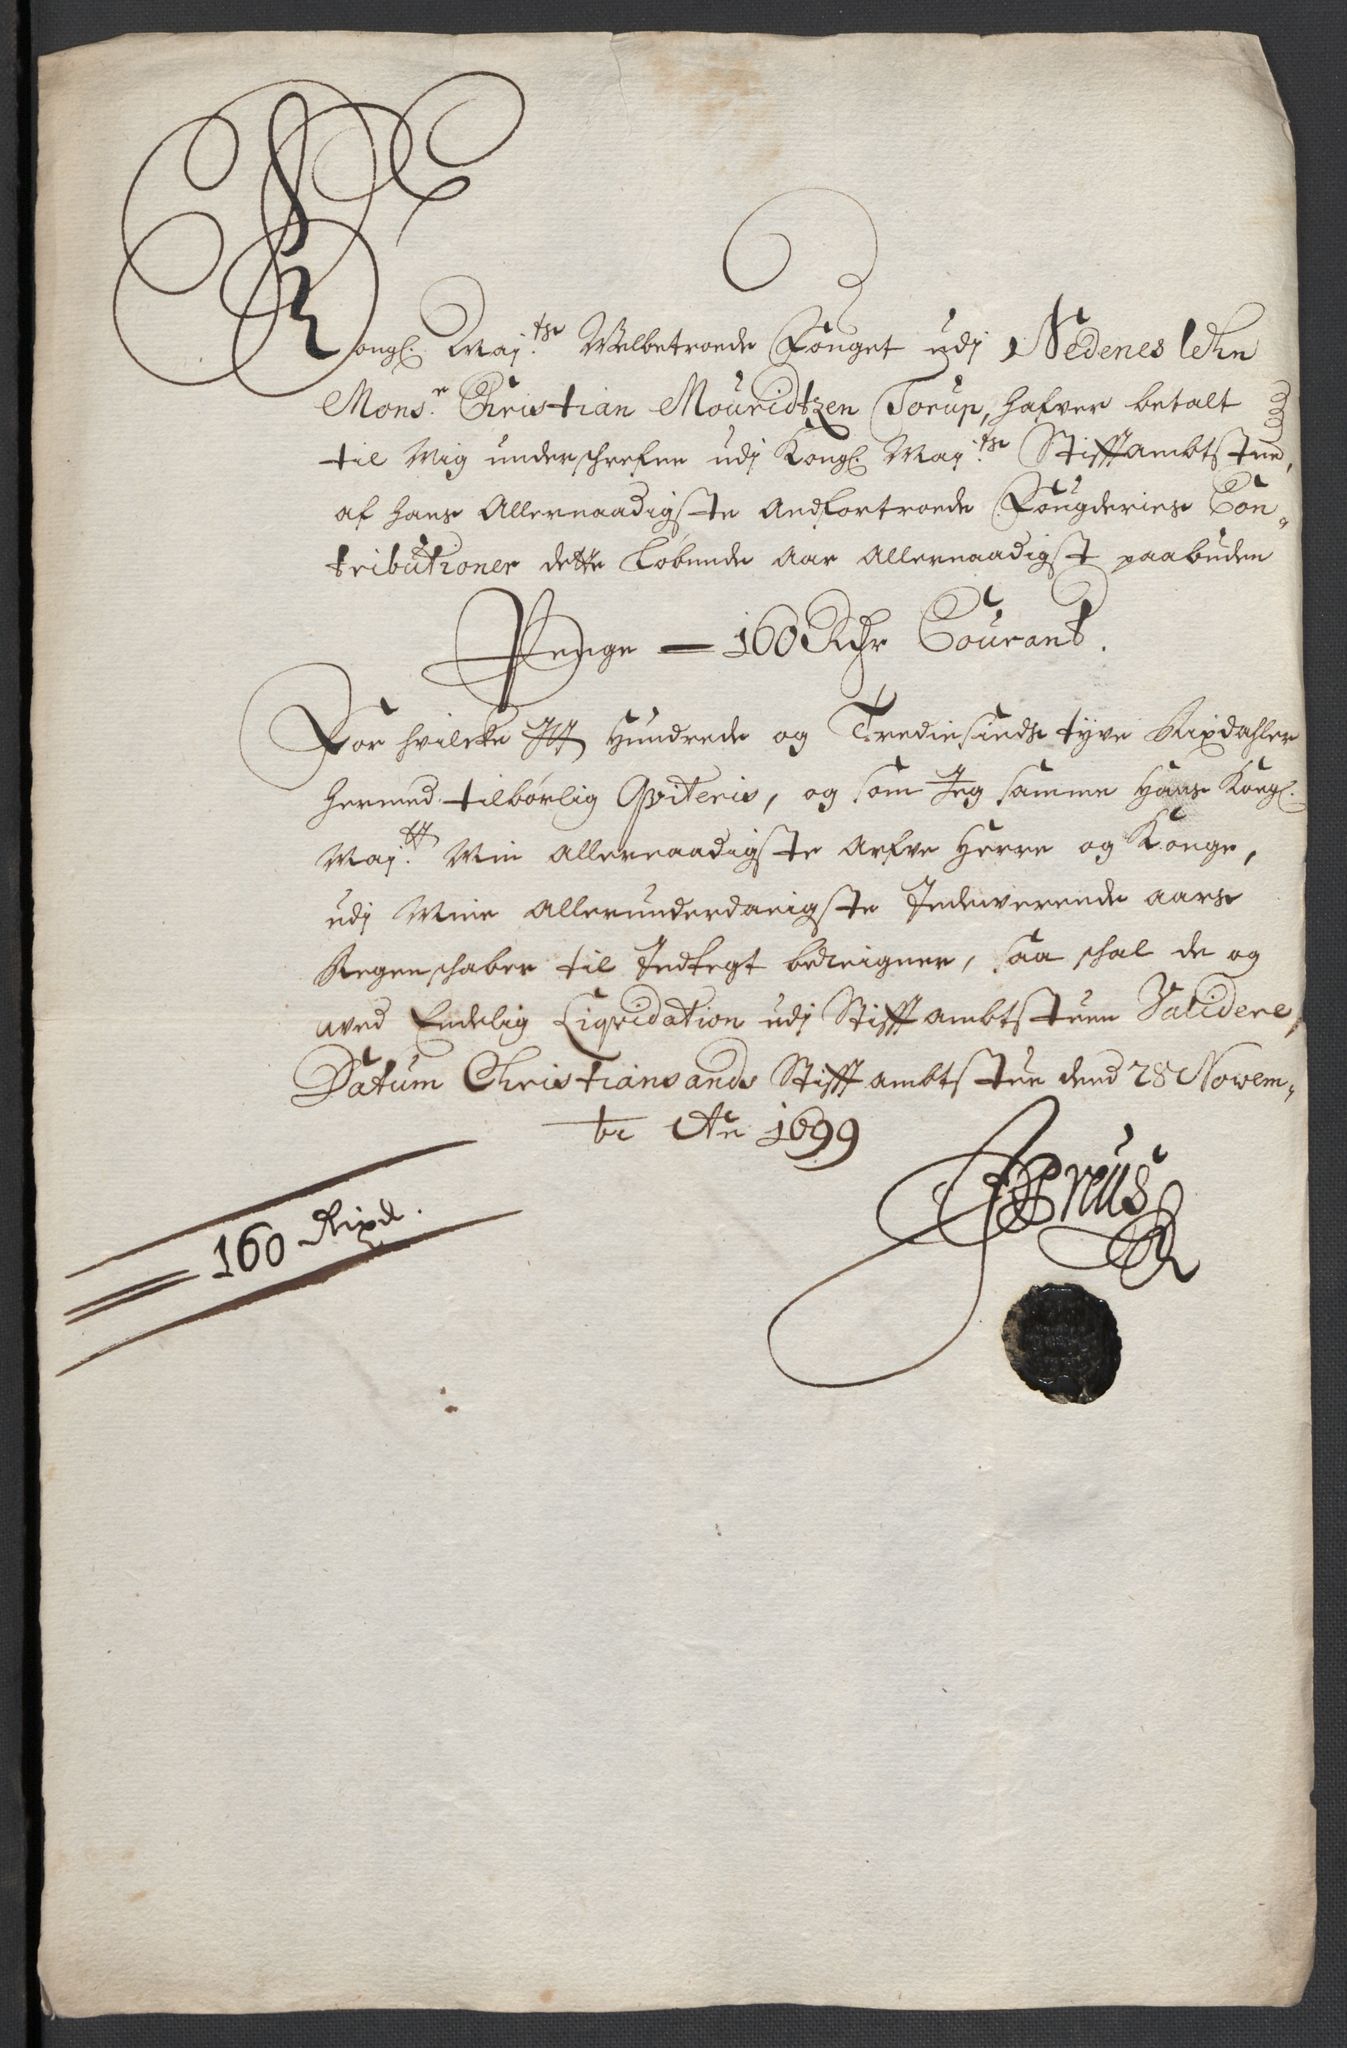 Kongl. Maj.ts Welbetroede Fouget udj Nedenes lehn
Mons.r Christian Mouridtzen Torup, hafver betalt
til Mig underschrefne udj Kongl. Maj.ts Stifftambtstue,
af hans Allernaadigste Anfortroede Fougderies Con-
tributioner dette løbende Aar Allernaadigst paabuden
Penge — 160 Rdr Courant.
For hvilcke Itt Hundrede og Trediesinds tyve Rixdahler
hermed tilbørlig Qviteris, og som Jeg samme Hans Kongl.
Maj.tt Min Allernaadigste Arfve Herre og Konge,
udj Mine Allerunderdanigste Indewerende aars
Regenschaber til Indtegt beregner, saa schal de og
wed Endelig Liqvidation udj Stifftambtstuen Validere,
Datum Christiansands Stifftambtstue dend 28 Novem-
br Ao 1699
Preus
160 Rixd.